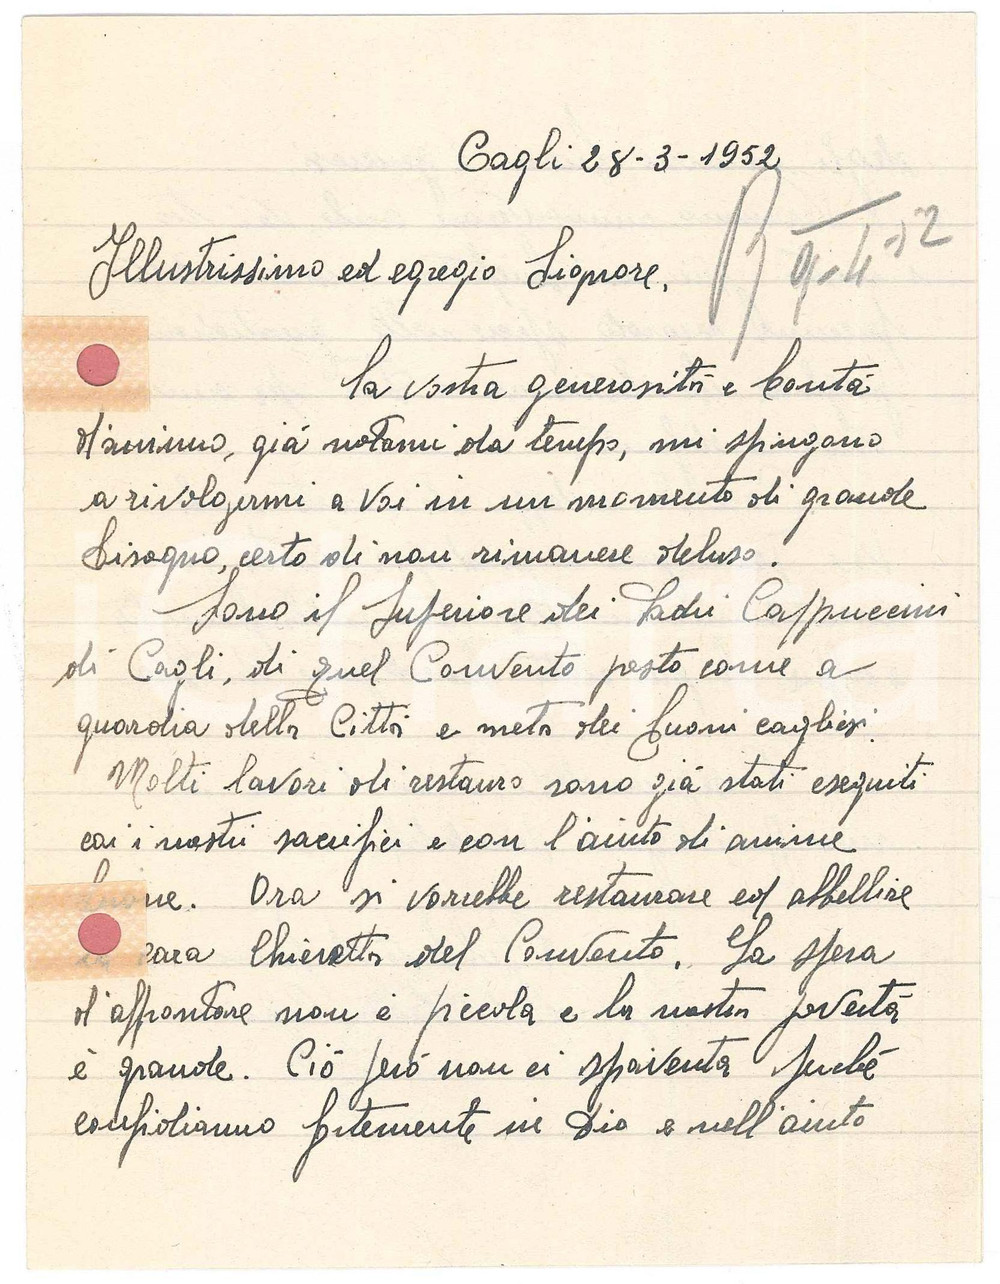 Cagli 28-3-1952
R 9-4-52
Illustrissimo ed egregio Signore,
la vostra generosità e bontà
d'animo, già notami da tempo, mi spingono
a rivolgermi a Voi in un momento di grande
bisogno, certo di non rimanere deluso.
Sono il Superiore dei Padri Cappuccini
di Cagli, di quel Convento posto come a
guardia della Città e meta dei buoni cagliesi.
Molti lavori di restauro sono già stati eseguiti
coi i nostri sacrifici e con l'aiuto di anime
buone. Ora si vorrebbe restaurare ed abbellire
cara Chiesetta del Convento. La spesa
d'affrontare non è piccola e la nostra povertà
è grande. Ciò però non ci spaventa perchè
confidiamo fortemente in Dio e nell'aiuto